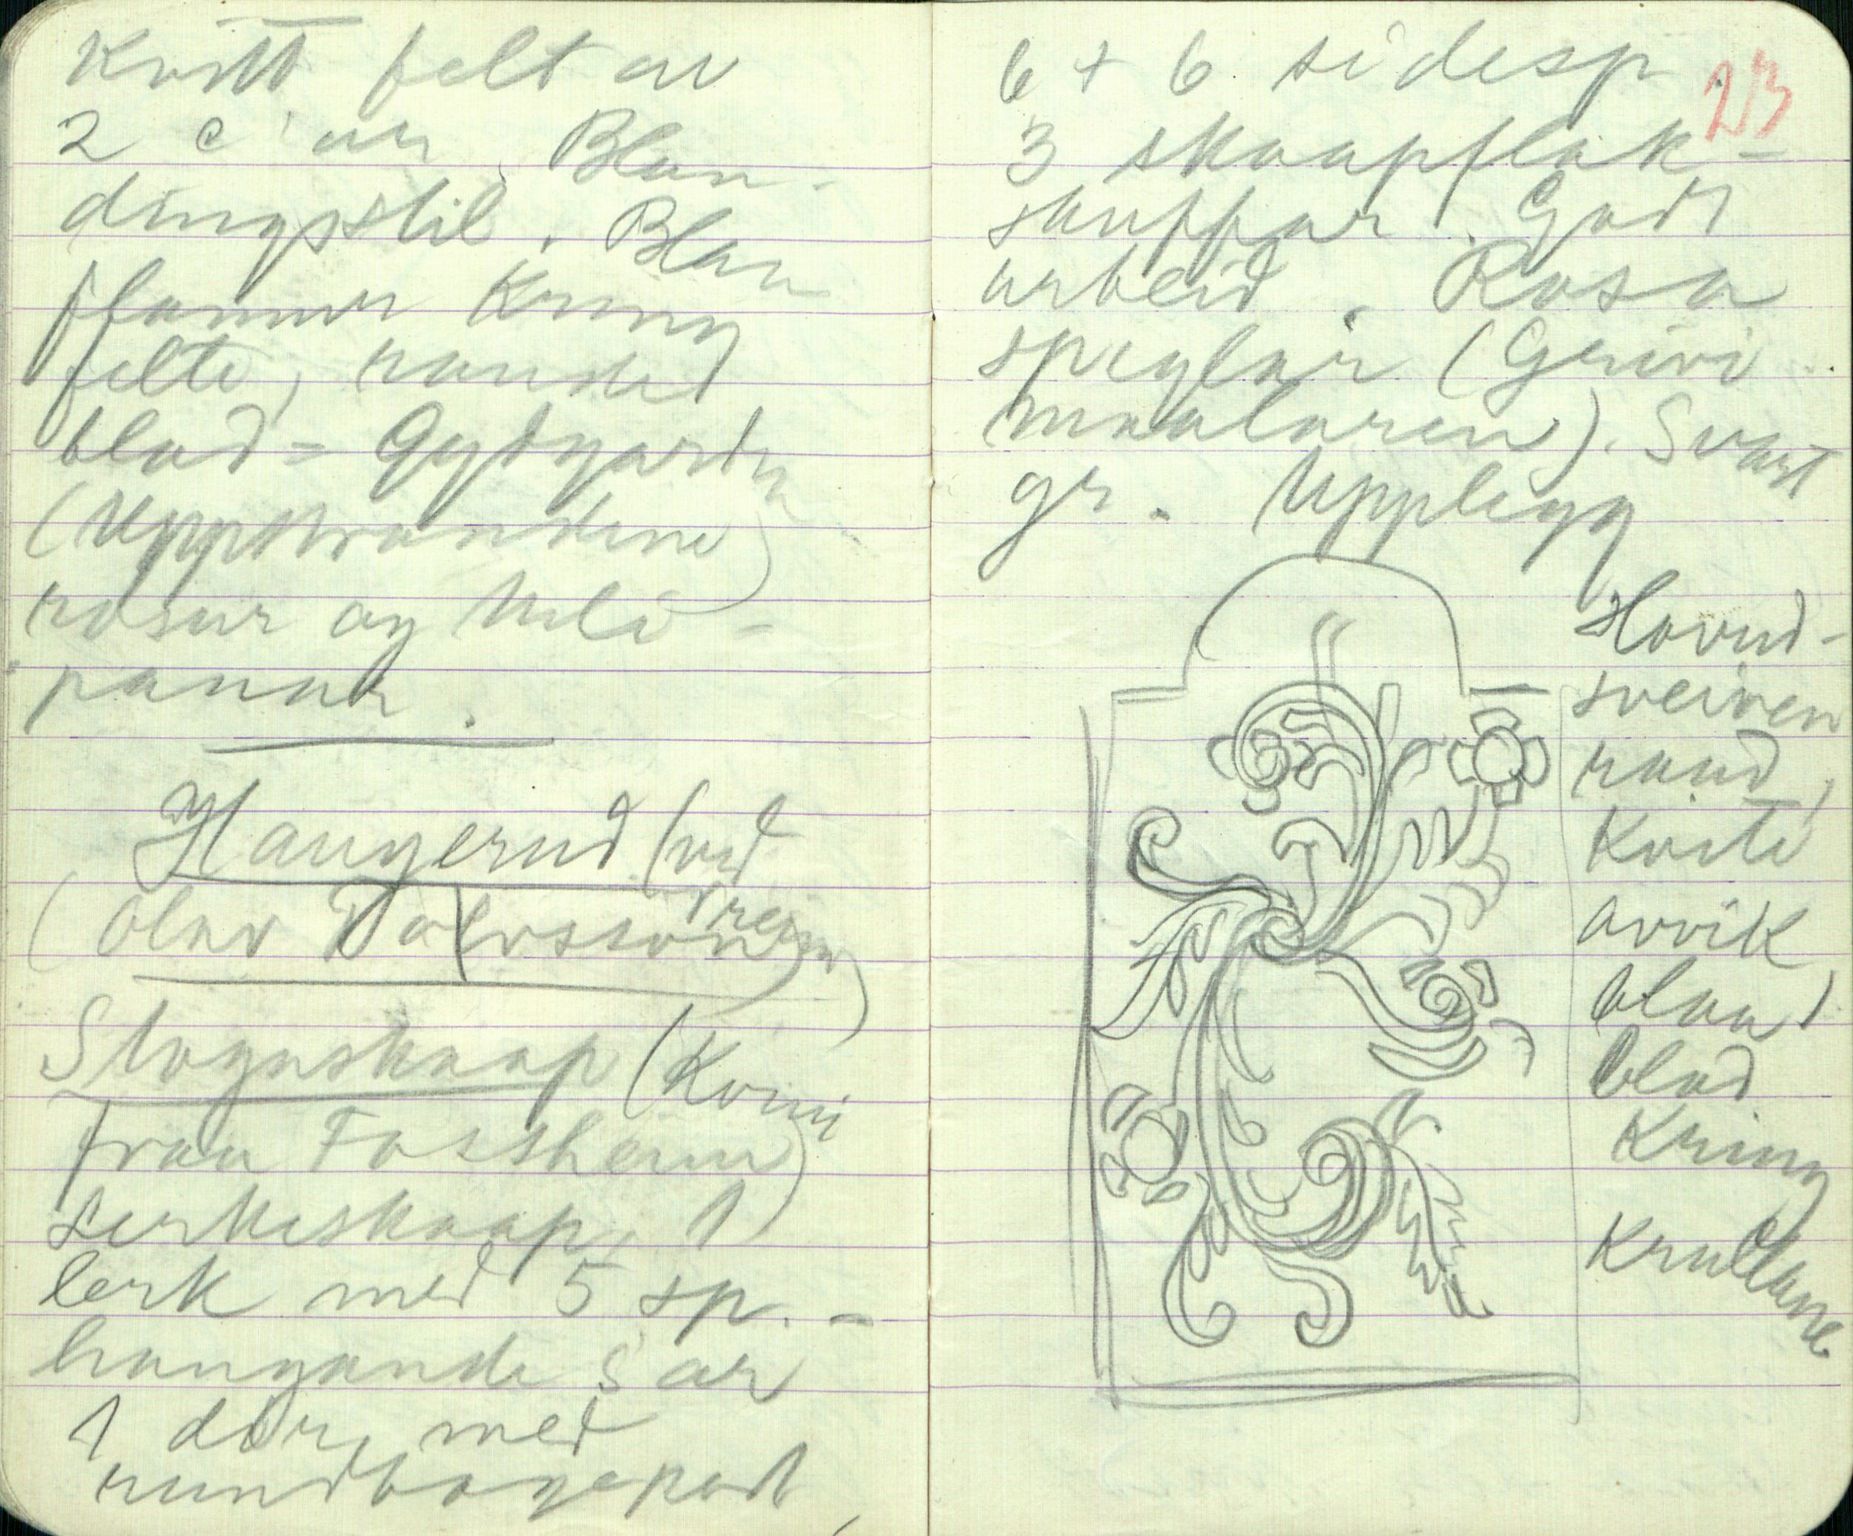 Kvitt felt av
2 c'ar. Blan-
dingsstil. Blaa
flammer kring
felte, rauded
blad = Gydgarden
(Uppstrandene)
rosur og tuli-
panar.
Haugerud (ved
(Olav Tolvsson)
Treim)
Stoguskaap (Kome
fraa Fossheim)
serkeskaap, 1
lerk med 5 sp. -
hangande s'ar
1 dør, med
rundbogepart,
23
6 + 6 sidesp
3 skaapflak-
skuffar. Godt
arbeid. Rosa
speglar (Geivi
maalaren). Svart
gr. Upplegg
Hovud-
sveiven
raud,
kvite
avvik,
blaa
blad
kring
krullane